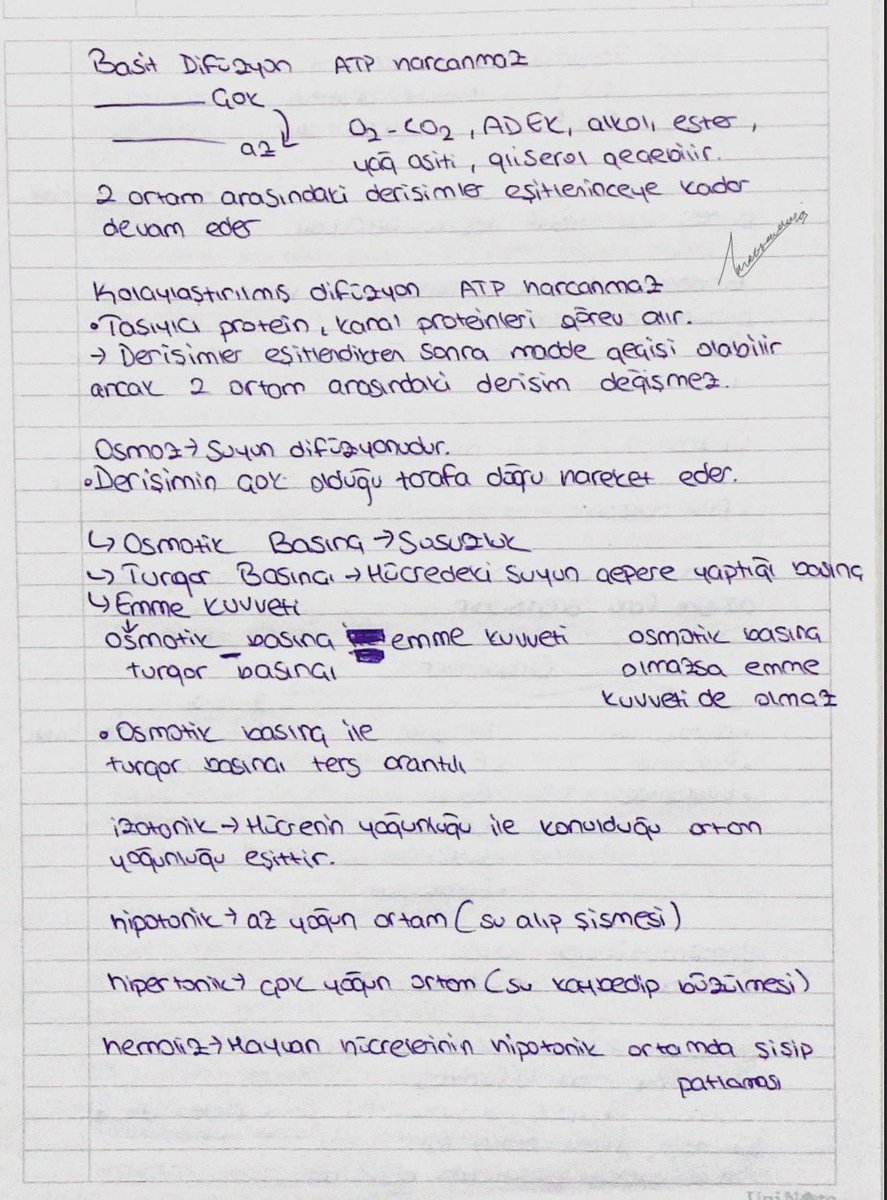 Basit Difüzyon ATP harcanmaz
Çok
az
O₂-CO₂, ADEK, alkol, ester,
yağ asiti, gliserol geçebilir.
2 ortam arasındaki derişimler eşitleninceye kadar
devam eder
Kolaylaştırılmış difüzyon ATP harcanmaz
• Taşıyıcı protein, kanal proteinleri görev alır.
→ Derişimler eşitlendikten sonra madde geçişi olabilir
ancak 2 ortam arasındaki derişim değişmez.
Osmoz → Suyun difüzyonudur.
• Derişimin çok olduğu tarafa doğru hareket eder.
↳ Osmotik Basınç → Susuzluk
↳ Turgor Basıncı → Hücredeki suyun çepere yaptığı basınç
↳ Emme kuvveti
osmotik basınç = emme kuvveti
- turgor basıncı
osmotik basınç
olmazsa emme
kuvveti de olmaz
• Osmotik basınç ile
turgor basıncı ters orantılı
izotonik → Hücrenin yoğunluğu ile konulduğu ortam
yoğunluğu eşittir.
hipotonik → az yoğun ortam (su alıp şişmesi)
hipertonik → çok yoğun ortam (su kaybedip büzülmesi)
hemoliz → Hayvan hücrelerinin hipotonik ortamda şişip
patlaması